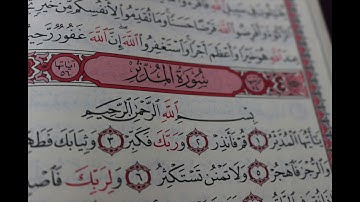 اللَّهَ قَرْضًا حَسَنًا وَمَا تُقَدِّمُوا لِأَنفُسِكُم مِّنْ خَيْرٍ
اللَّهِ هُوَ خَيْرًا وَأَعْظَمَ أَجْرًا وَاسْتَغْفِرُوا اللَّهَ إِنَّ اللَّهَ غَفُورٌ رَّحِيمٌ
سُورَةُ المُدَّثِّر آيَاتُهَا ٥٦
بِسْمِ اللَّهِ الرَّحْمَٰنِ الرَّحِيمِ
يَٰٓأَيُّهَا الْمُدَّثِّرُ ١ قُمْ فَأَنذِرْ ٢ وَرَبَّكَ فَكَبِّرْ ٣ وَثِيَابَكَ فَطَهِّ
وَالرُّجْزَ فَاهْجُرْ ٥ وَلَا تَمْنُن تَسْتَكْثِرُ ٦ وَلِرَبِّكَ فَاصْ